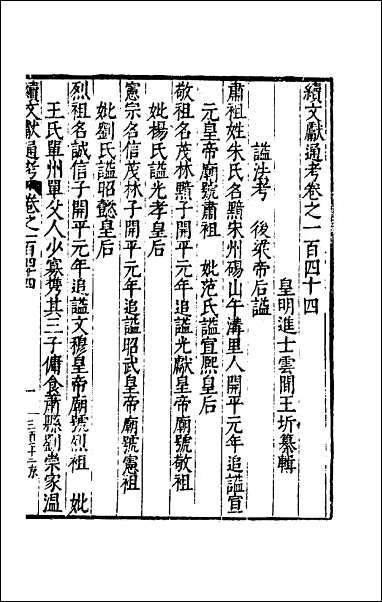 續文獻通考卷之一百四十四
皇明進士雲間王圻纂輯
諡法考　後梁帝后諡
肅祖姓朱氏名黯宋州碭山午溝里人開平元年追諡宣
元皇帝廟號肅祖　妣范氏諡宣熙皇后
敬祖名茂林黯子開平元年追諡光獻皇帝廟號敬祖
妣楊氏諡光孝皇后
憲宗名信茂林子開平元年追諡昭武皇帝廟號憲祖
妣劉氏諡昭懿皇后
烈祖名誠信子開平元年追諡文穆皇帝廟號烈祖　妣
王氏單州單父人少寡攜其三子傭食蕭縣劉崇家溫
續文獻通考　卷之一百四十四　一